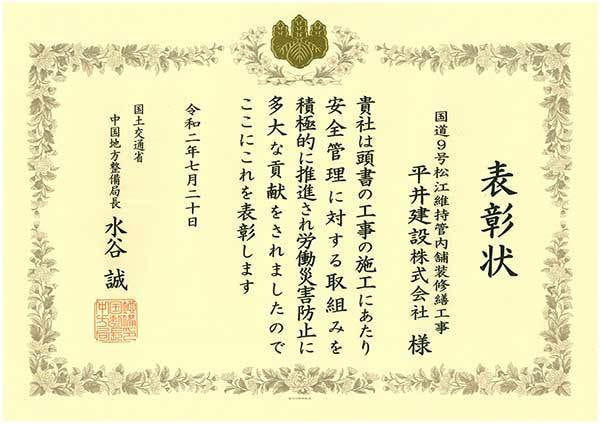 表彰状
国道９号松江維持管内舗装修繕工事
平井建設株式会社 様
貴社は頭書の工事の施工にあたり
安全管理に対する取組みを
積極的に推進され労働災害防止に
多大な貢献をされましたので
ここにこれを表彰します
令和二年七月二十日
国土交通省
中国地方整備局長 水谷 誠